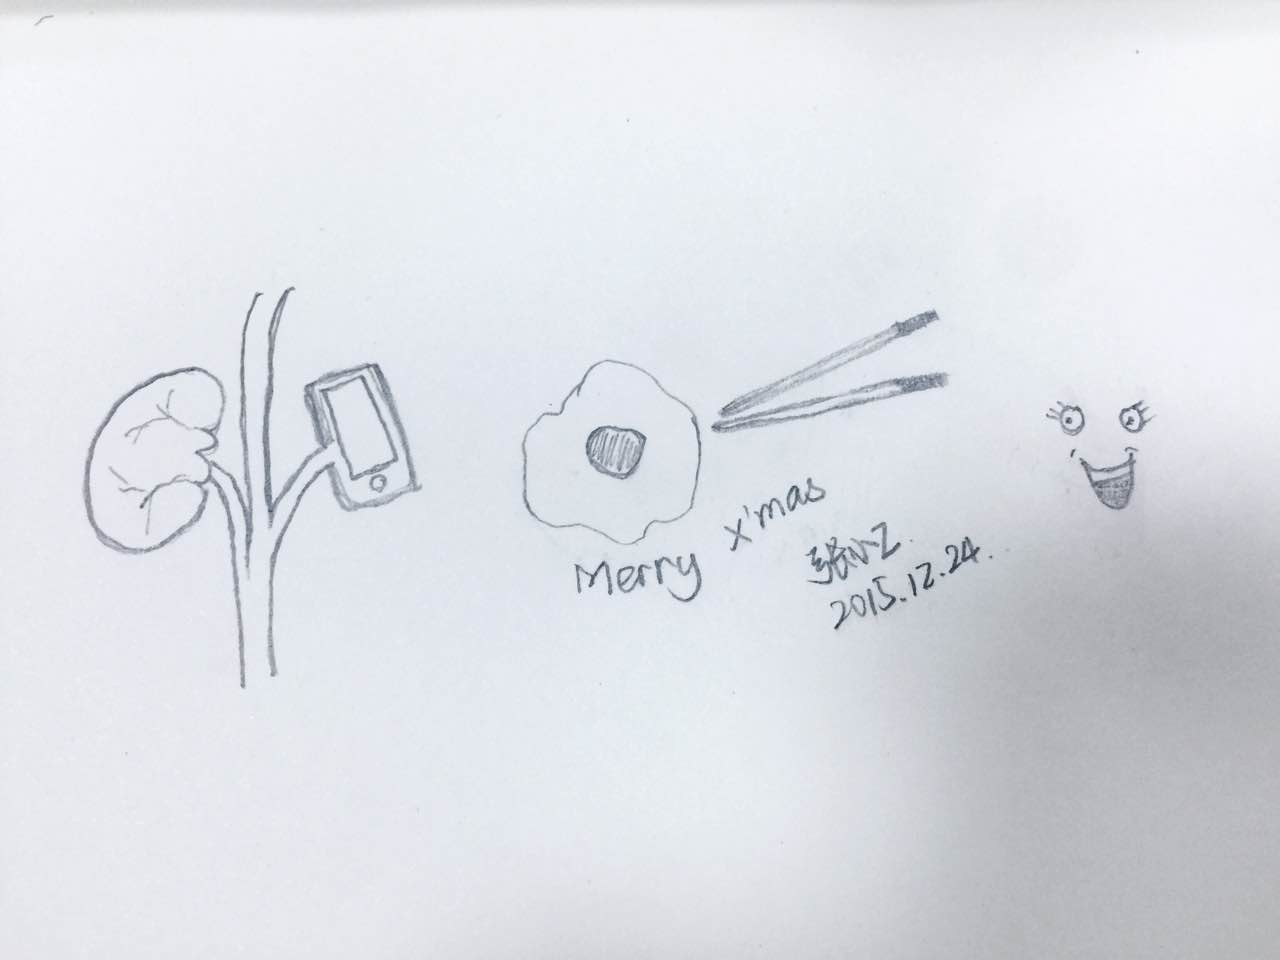 Merry x'mas
2015.12.24.